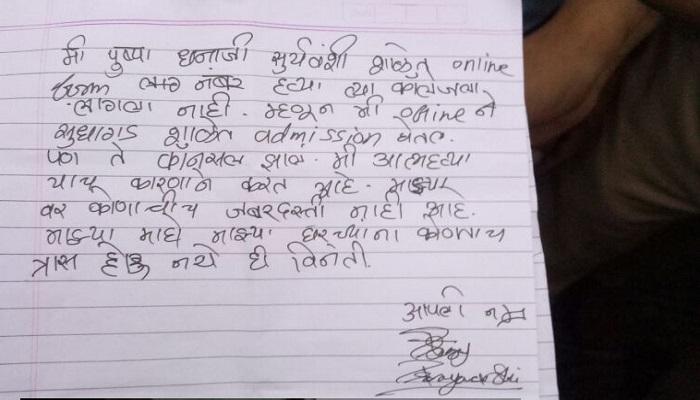 मी पुष्पा धनाजी सुर्यवंशी शाळेत online
form भार नंबर हत्या त्या कालेजला
लागला नाही. म्हणून मी online ने
सुधागड शाळेत admission घेतल.
पण ते कानसल झाल. मी आत्महत्या
याच कारणाने करत आहे. माझ्या
वर कोणाचीच जबरदस्ती नाही आहे.
माझ्या माघे माझ्या घरच्याना कोणताच
त्रास होऊ नये ही विनंती.
आपली नम्र